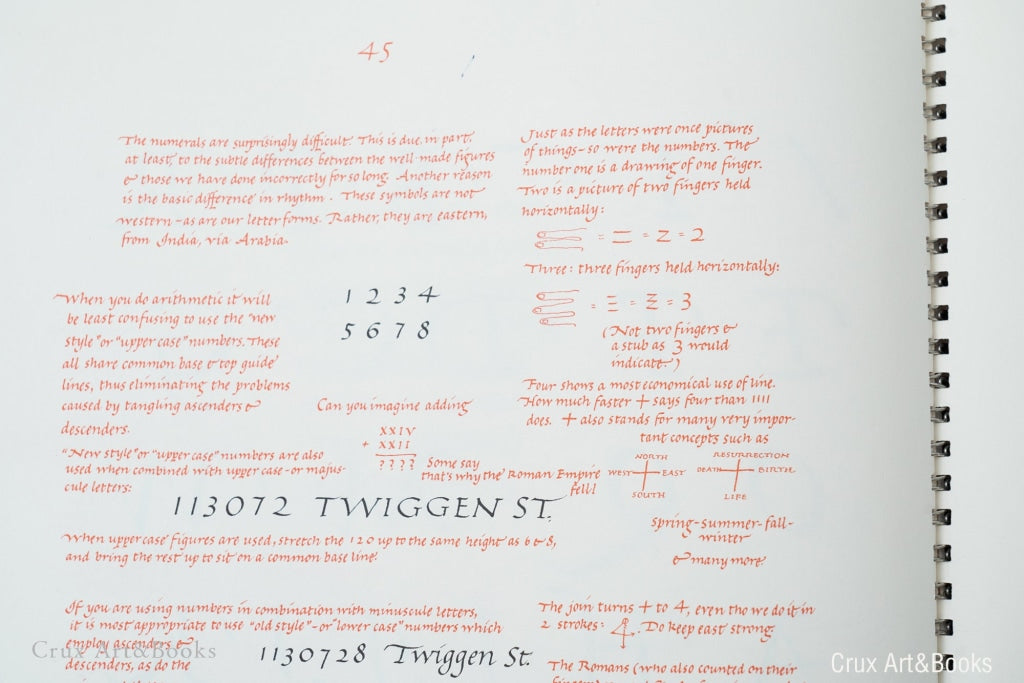 45
The numerals are surprisingly difficult. This is due, in part,
at least, to the subtle differences between the well-made figures
& those we have done incorrectly for so long. Another reason
is the basic difference in rhythm. These symbols are not
western - as are our letter forms. Rather, they are eastern,
from India, via Arabia.
When you do arithmetic it will
be least confusing to use the "new
style" or "upper case" numbers. These
all share common base & top guide
lines, thus eliminating the problems
caused by tangling ascenders &
descenders.
1 2 3 4
5 6 7 8
Can you imagine adding
XXIV
+ XXII
? ? ? ?
Some say
that's why the Roman Empire
fell!
"New style" or "upper case" numbers are also
used when combined with upper case - or majus-
cule letters:
113072 TWIGGEN ST.
When upper case figures are used, stretch the 1 2 0 up to the same height as 6 & 8,
and bring the rest up to sit on a common base line.
If you are using numbers in combination with minuscule letters,
it is most appropriate to use "old style" - or "lower case" numbers which
employ ascenders &
descenders, as do the
1130728 Twiggen St.
Just as the letters were once pictures
of things - so were the numbers. The
number one is a drawing of one finger.
Two is a picture of two fingers held
horizontally:
= = = Z = 2
Three: three fingers held horizontally:
= Ξ = Ξ = 3
(Not two fingers &
a stub as 3 would
indicate.)
Four shows a most economical use of line.
How much faster + says four than 1111
does. + also stands for many very impor-
tant concepts such as
NORTH
WEST EAST
SOUTH
RESURRECTION
DEATH BIRTH
LIFE
spring-summer-fall-
winter
& many more.
The join turns + to 4, even tho we do it in
2 strokes: 4. Do keep east strong.
The Romans (who also counted on their
Crux Art&Books
Crux Art&Books